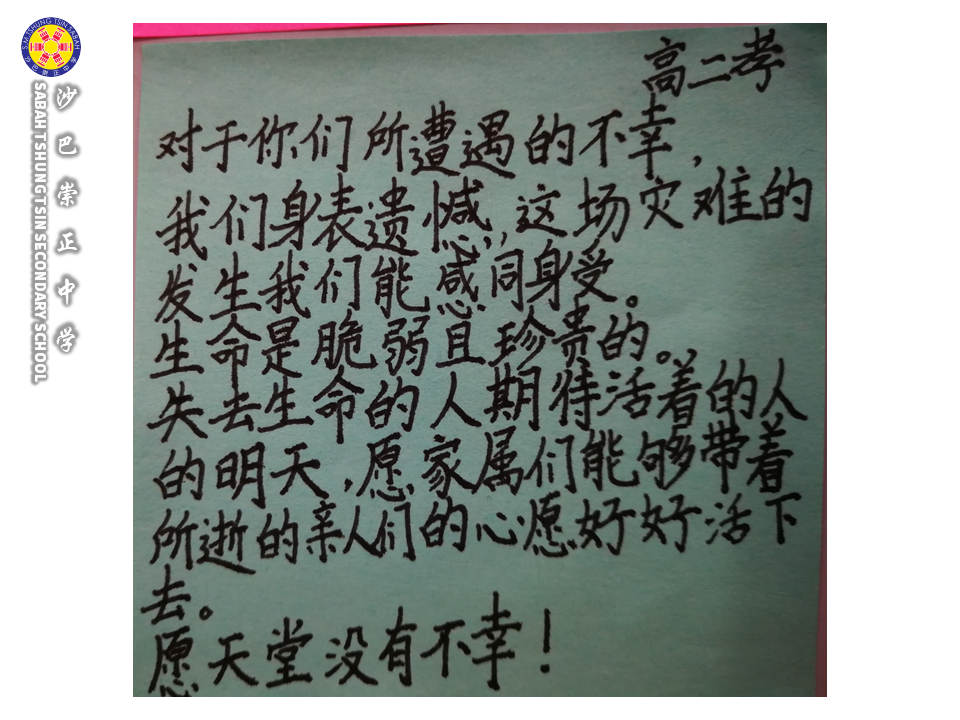 S.M. TSHUNG TSIN SABAH
沙巴崇正中学
沙巴崇正中学
SABAH TSHUNG TSIN SECONDARY SCHOOL
高二孝
对于你们所遭遇的不幸，
我们身表遗憾，这场灾难的
发生我们能感同身受。
生命是脆弱且珍贵的。
失去生命的人期待活着的人
的明天，愿家属们能够带着
所逝的亲人们的心愿好好活下
去。
愿天堂没有不幸！